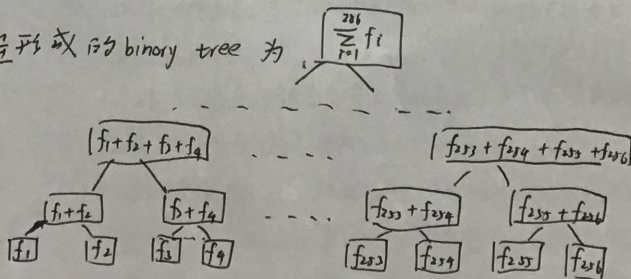 形成的 binary tree 为 \sum_{i=1}^{256} f_i
f_1+f_2+f_3+f_4 .... f_{253}+f_{254}+f_{255}+f_{256}
f_1+f_2 f_3+f_4 .... f_{253}+f_{254} f_{255}+f_{256}
f_1 f_2 f_3 f_4 f_{253} f_{254} f_{255} f_{256}